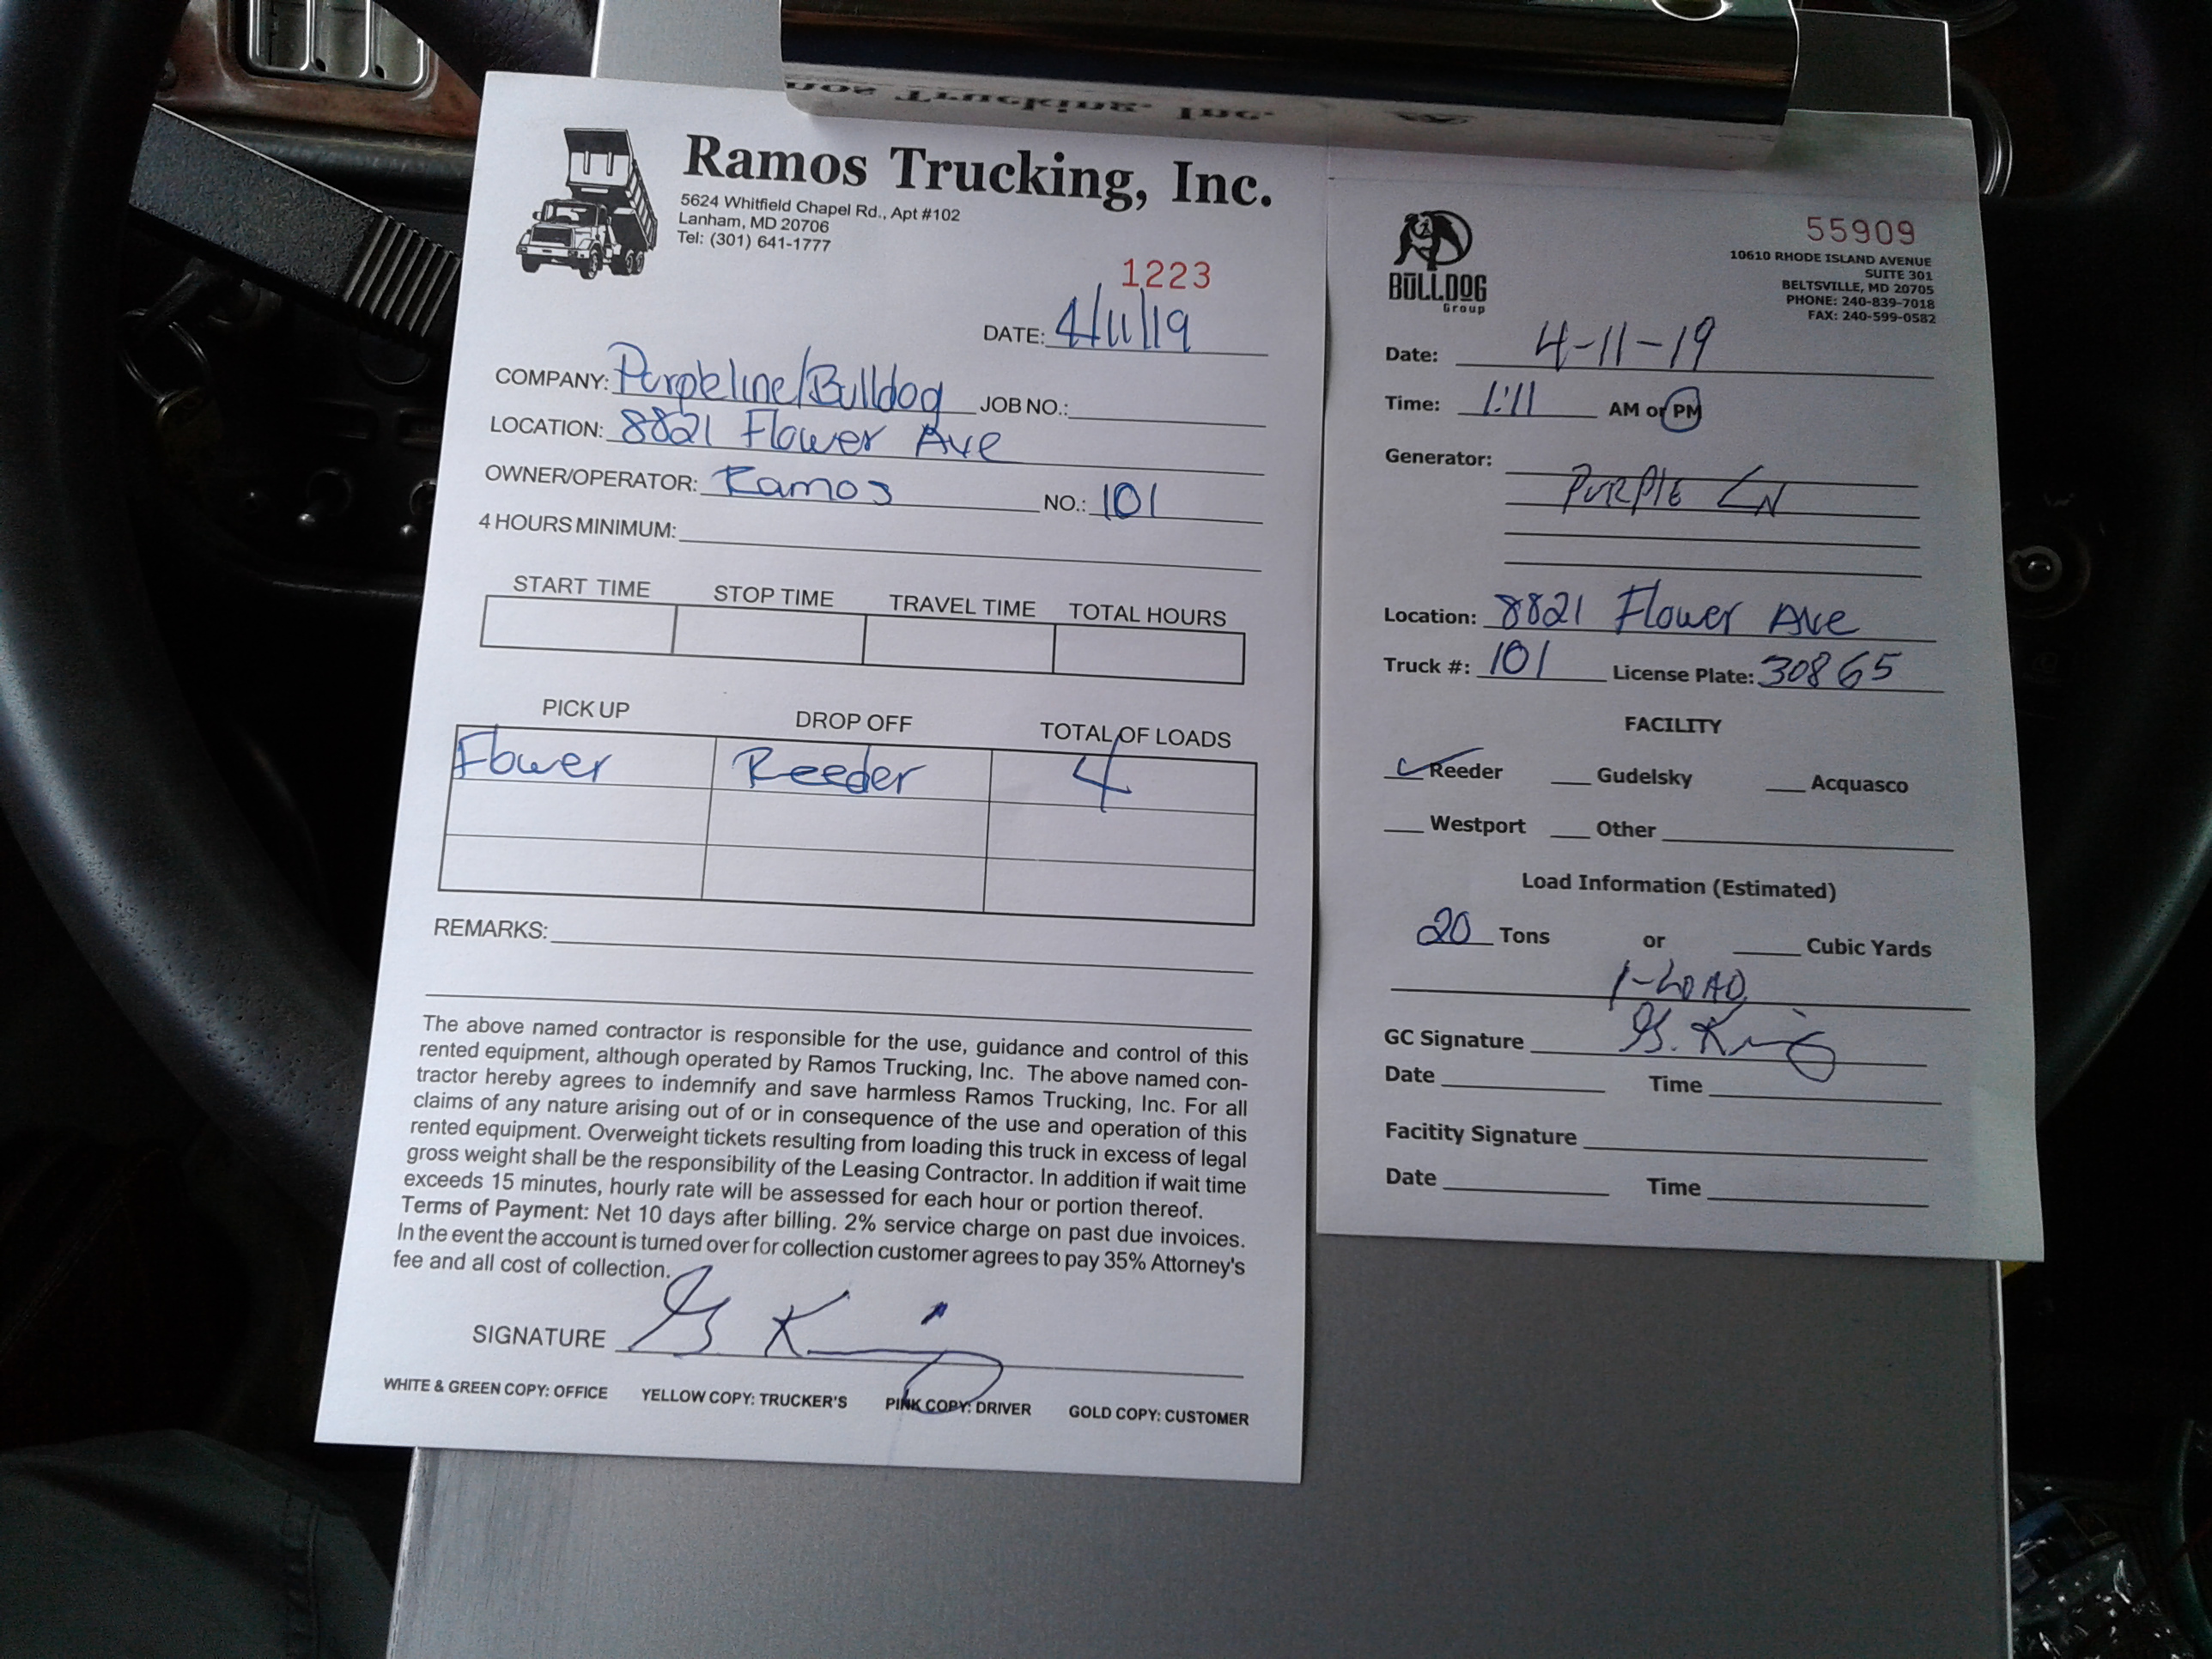 Ramos Trucking, Inc.
5624 Whitfield Chapel Rd., Apt #102
Lanham, MD 20706
Tel: (301) 641-1777
1223
DATE: 4/11/19
COMPANY: Purpleline/Bulldog JOB NO.:
LOCATION: 8821 Flower Ave
OWNER/OPERATOR: Ramos NO.: 101
4 HOURS MINIMUM:
START TIME STOP TIME TRAVEL TIME TOTAL HOURS
PICK UP DROP OFF TOTAL OF LOADS
Flower Reeder 4
REMARKS:
The above named contractor is responsible for the use, guidance and control of this
rented equipment, although operated by Ramos Trucking, Inc. The above named con-
tractor hereby agrees to indemnify and save harmless Ramos Trucking, Inc. For all
claims of any nature arising out of or in consequence of the use and operation of this
rented equipment. Overweight tickets resulting from loading this truck in excess of legal
gross weight shall be the responsibility of the Leasing Contractor. In addition if wait time
exceeds 15 minutes, hourly rate will be assessed for each hour or portion thereof.
Terms of Payment: Net 10 days after billing. 2% service charge on past due invoices.
In the event the account is turned over for collection customer agrees to pay 35% Attorney's
fee and all cost of collection.
SIGNATURE G. King
WHITE & GREEN COPY: OFFICE YELLOW COPY: TRUCKER'S PINK COPY: DRIVER GOLD COPY: CUSTOMER
nos Trucking, Inc.
BULLDOG
Group
55909
10610 RHODE ISLAND AVENUE
SUITE 301
BELTSVILLE, MD 20705
PHONE: 240-839-7018
FAX: 240-599-0582
Date: 4-11-19
Time: 1:11 AM or PM
Generator: PURPLE LN
Location: 8821 Flower Ave
Truck #: 101 License Plate: 30865
FACILITY
Reeder Gudelsky Acquasco
Westport Other
Load Information (Estimated)
20 Tons or Cubic Yards
1-LOAD
GC Signature G. King
Date Time
Facitity Signature
Date Time